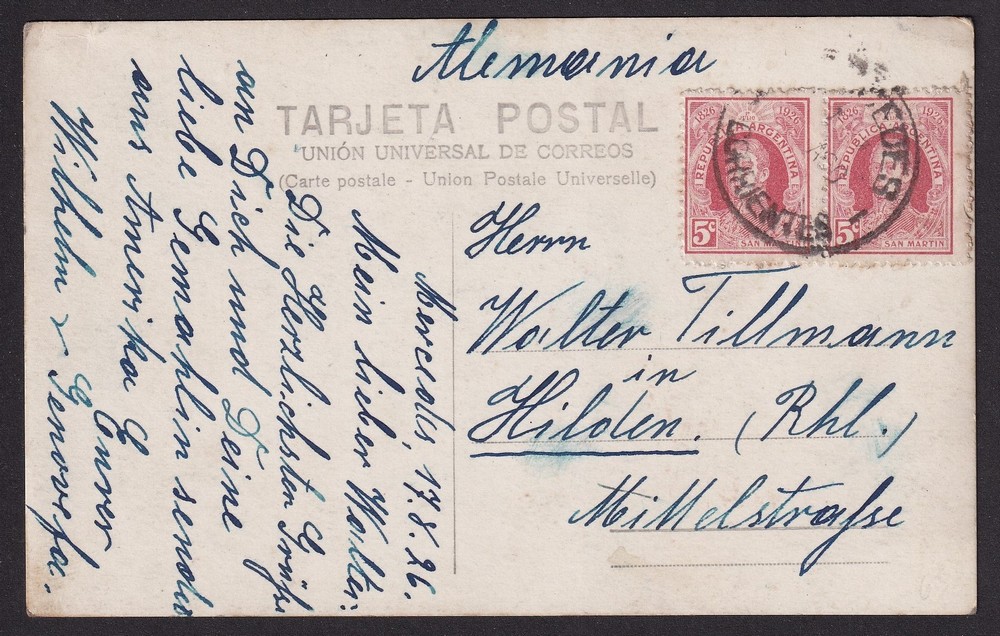 Alemania
TARJETA POSTAL
UNIÓN UNIVERSAL DE CORREOS
(Carte postale - Union Postale Universelle)
1826 1926
REPUBLICA ARGENTINA
5c
SAN MARTIN
1826 1926
REPUBLICA ARGENTINA
5c
SAN MARTIN
CORRIENTES
Herrn
Walter Tillmann
in
Hilden. (Rhl.)
Mittelstraße
Mercedes, 17.8.26.
Mein lieber Walter:
Die Herzlichsten Grüße
an Dich und Deine
liebe Gemahlin senden
aus Amerika Eurer
Wilhelm & Genovefa.